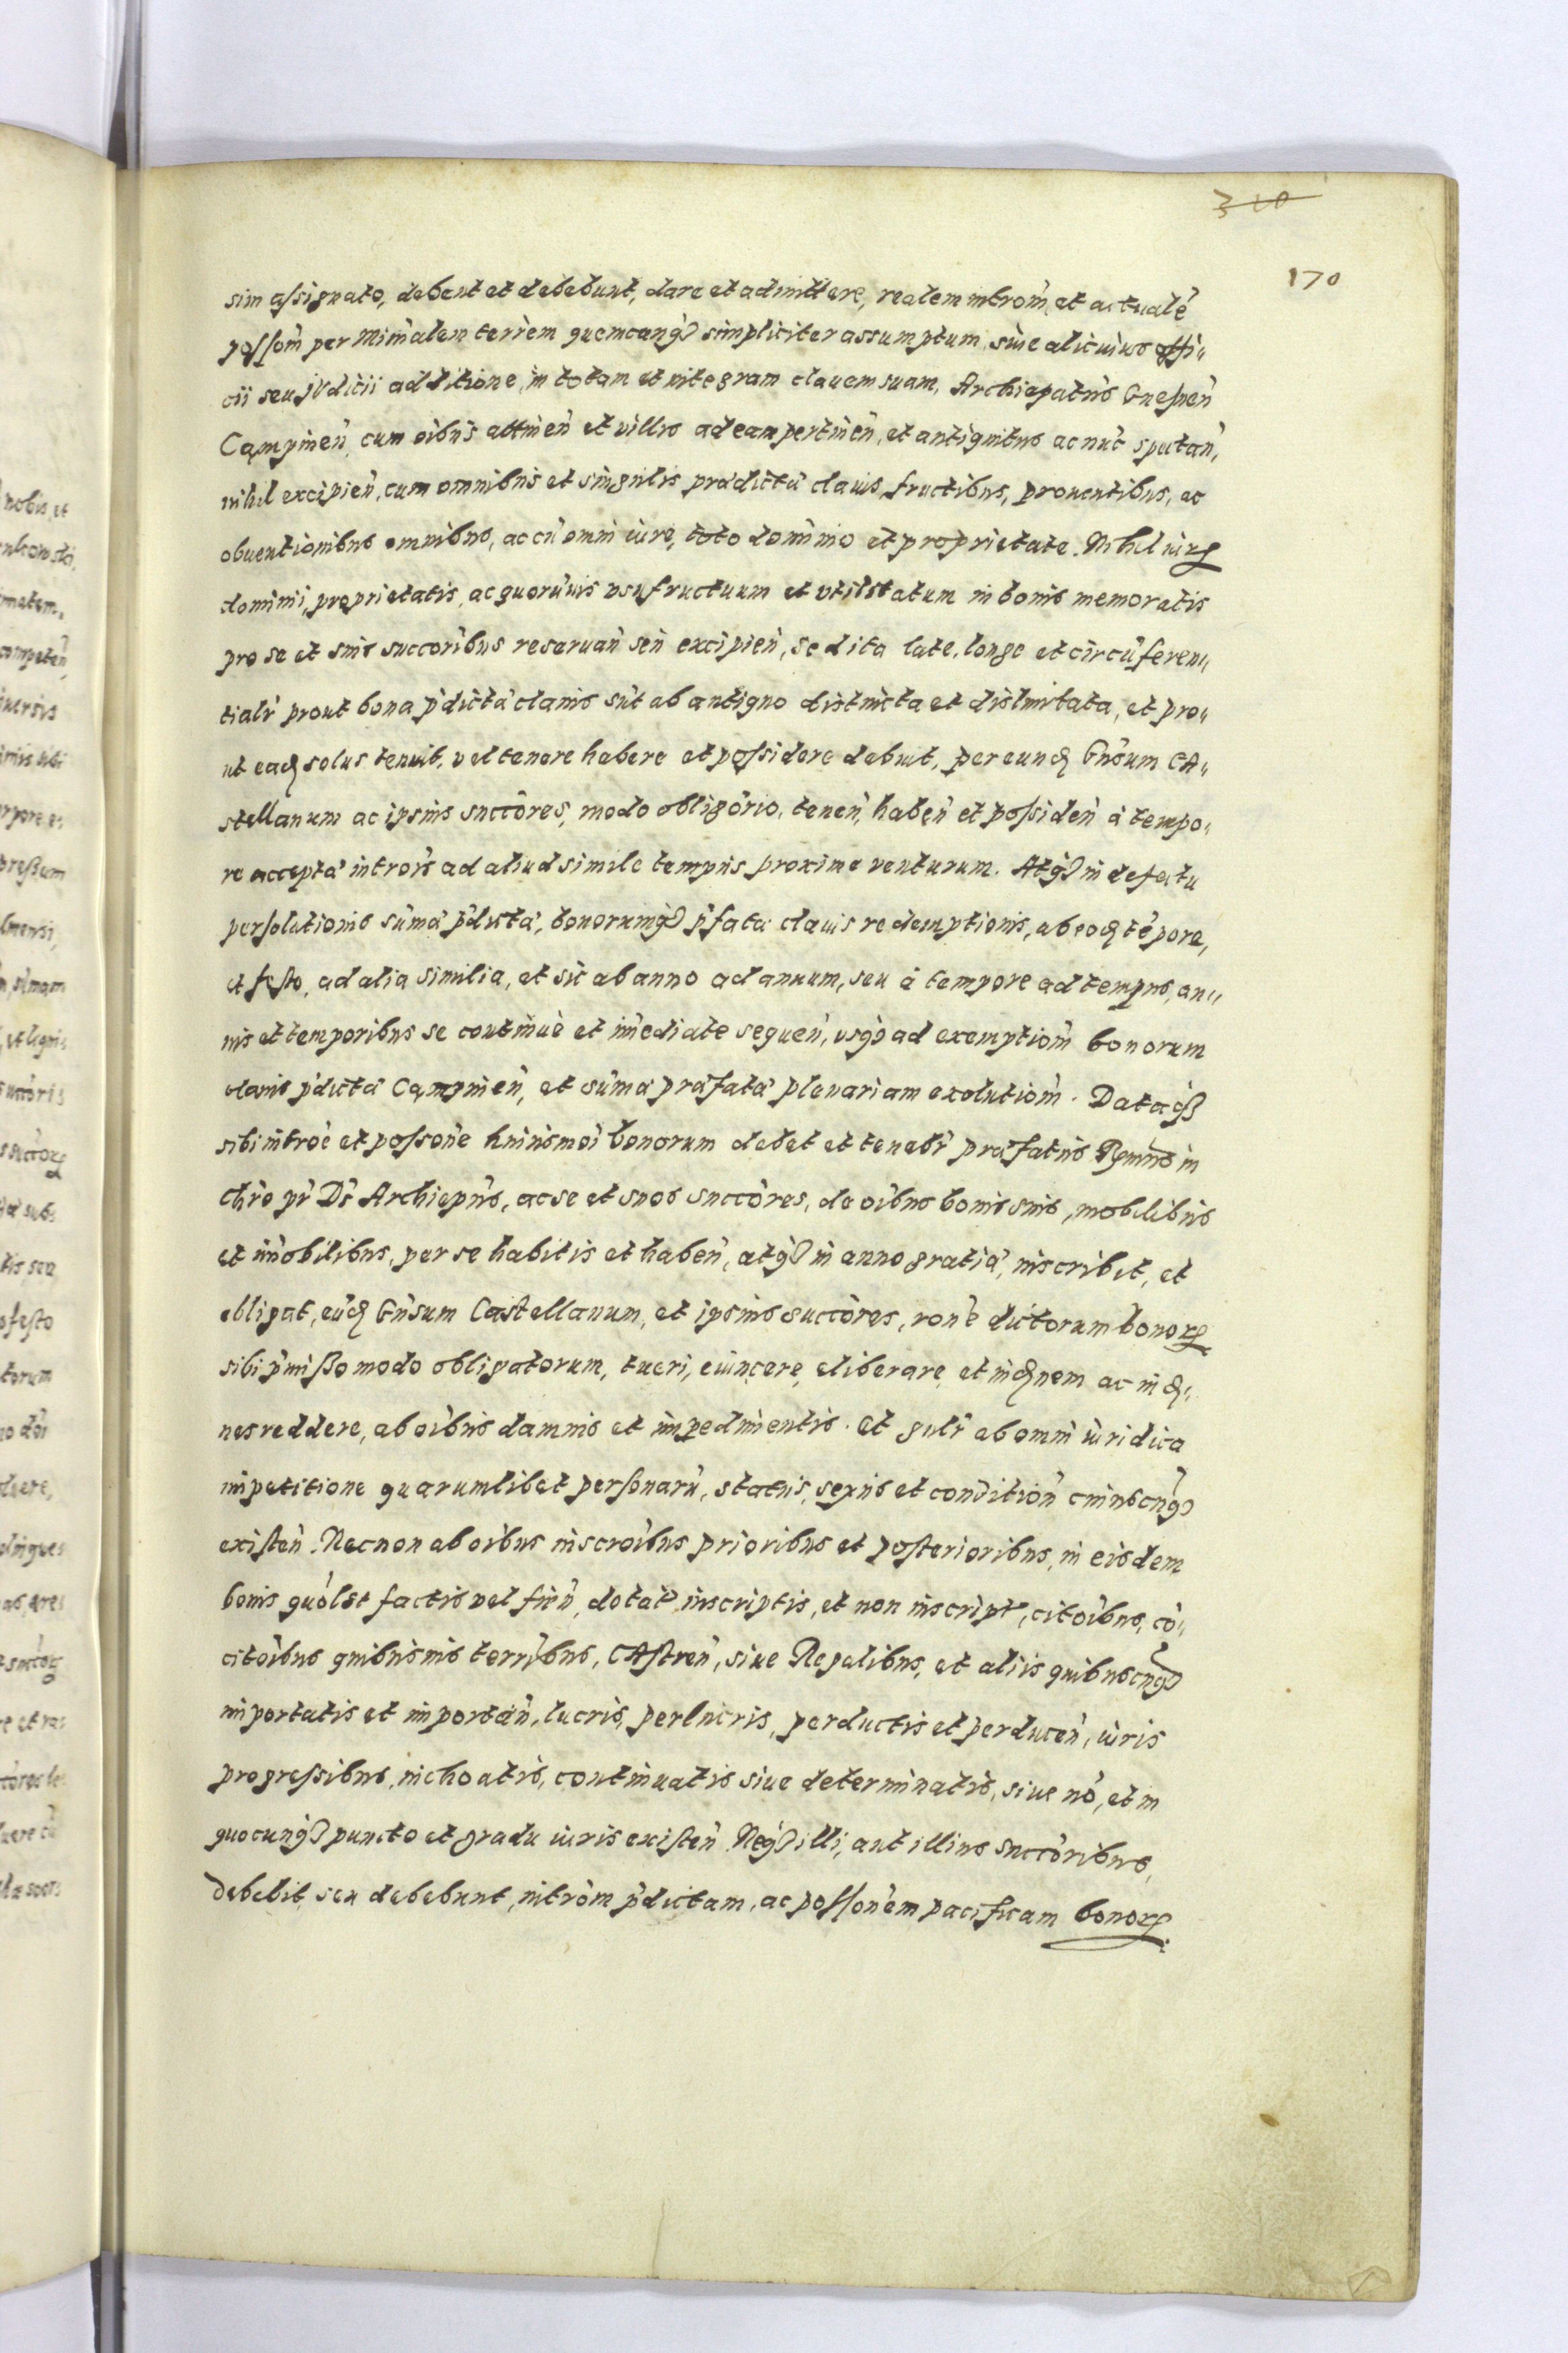 310
170
sim assignato, debent et debebunt, dare et admittere, realem introm̃, et actualẽ
possom̃ per Mim̃alem terrem̃ quemcunq3 simpliciter assumptum, sine alicuius offi„
cii seu judicii additione, in totam et integram clauem suam, Archiepatus Gnesneñ
Campineñ, cum oibus attineñ et villis ad eam pertineñ, et antiquitus ac nũc spectañ,
nihil excipieñ, cum omnibus et singulis prædictæ clauis, fructibus, prouentibus, ac
obuentionibus omnibus, ac cũ omni iure, toto dominio et proprietate. Nihil iuꝝ
dominii, proprietatis, ac quoruuis usufructuum et utilitatum in bonis memoratis
pro se et suis succoribus reseruañ seu excipieñ, sed ita late, longe et circũferen„
tialr̃ prout bona p̃dictæ clauis sũt ab antiquo distincta et dislimitata, et pro„
ut eaḍ solus tenuit, vel tenere habere et possidere debuit, per eunḍ Gñsum CA„
stellanum ac ipsius succõres, modo obligõrio, teneñ, habeñ et possideñ à tempo„
re acceptæ introis̃ ad aliud simile tempus proxime venturum. Atq3 in defectu
persolutionis sũmæ p̃dictæ, bonorumq3 p̃fatæ clauis redemptionis, ab eoḍ tẽpore,
et festo, ad alia similia, et sic ab anno ad annum, seu à tempore ad tempus, an„
nis et temporibus se continuè et im̃ediate sequeñ, usq3 ad exemptiom̃ bonorum
clauis p̃dictæ Campineñ, et sũmæ præfatæ plenariam exolutiom̃. Dataq3
sibi introe et possone huiusmõi bonorum debet et tenebr̃ præfatus Rṃus in
Chr̃o pr̃ Ds̃ Archiepũs, ac se et suos succõres, de oibus bonis suis, mobilibus
et im̃obilibus, per se habitis et habeñ, atq3 in anno gratiæ, inscribit, et
obligat, eũḍ Gñsum Castellanum, et ipsius succõres, rone dictorum bonoꝝ
sibi p̃misso modo obligatorum, tueri, euincere, eliberare, et inḍnem ac inḍ„
nes reddere, ab oibus damnis et impedimentis. Et gñlr̃ ab omni iuridica
impetitione quarumlibet personarũ, status, sexus et conditioñ cuiuscũq3
existeñ. Necnon ab oibus inscroibus prioribus et posterioribus, in eisdem
bonis quõlt factis vel fieñ, dotat̃ inscriptis, et non inscript̃, citoibus, cõ„
citoibus quibusuis terribus, CAstreñ, siue Regalibus, et aliis quibuscũq3
importatis et importañ, lucris, perlucris, perductis et perduceñ, iuris
progressibus, inchoatis, continuatis siue determinatis, siue nõ, et in
quocunq3 puncto et gradu iuris existeñ. Neq3 illi, aut illius succõribus,
debebit, seu debebunt, introm̃ p̃dictam, ac possonem pacificam bonoꝝ